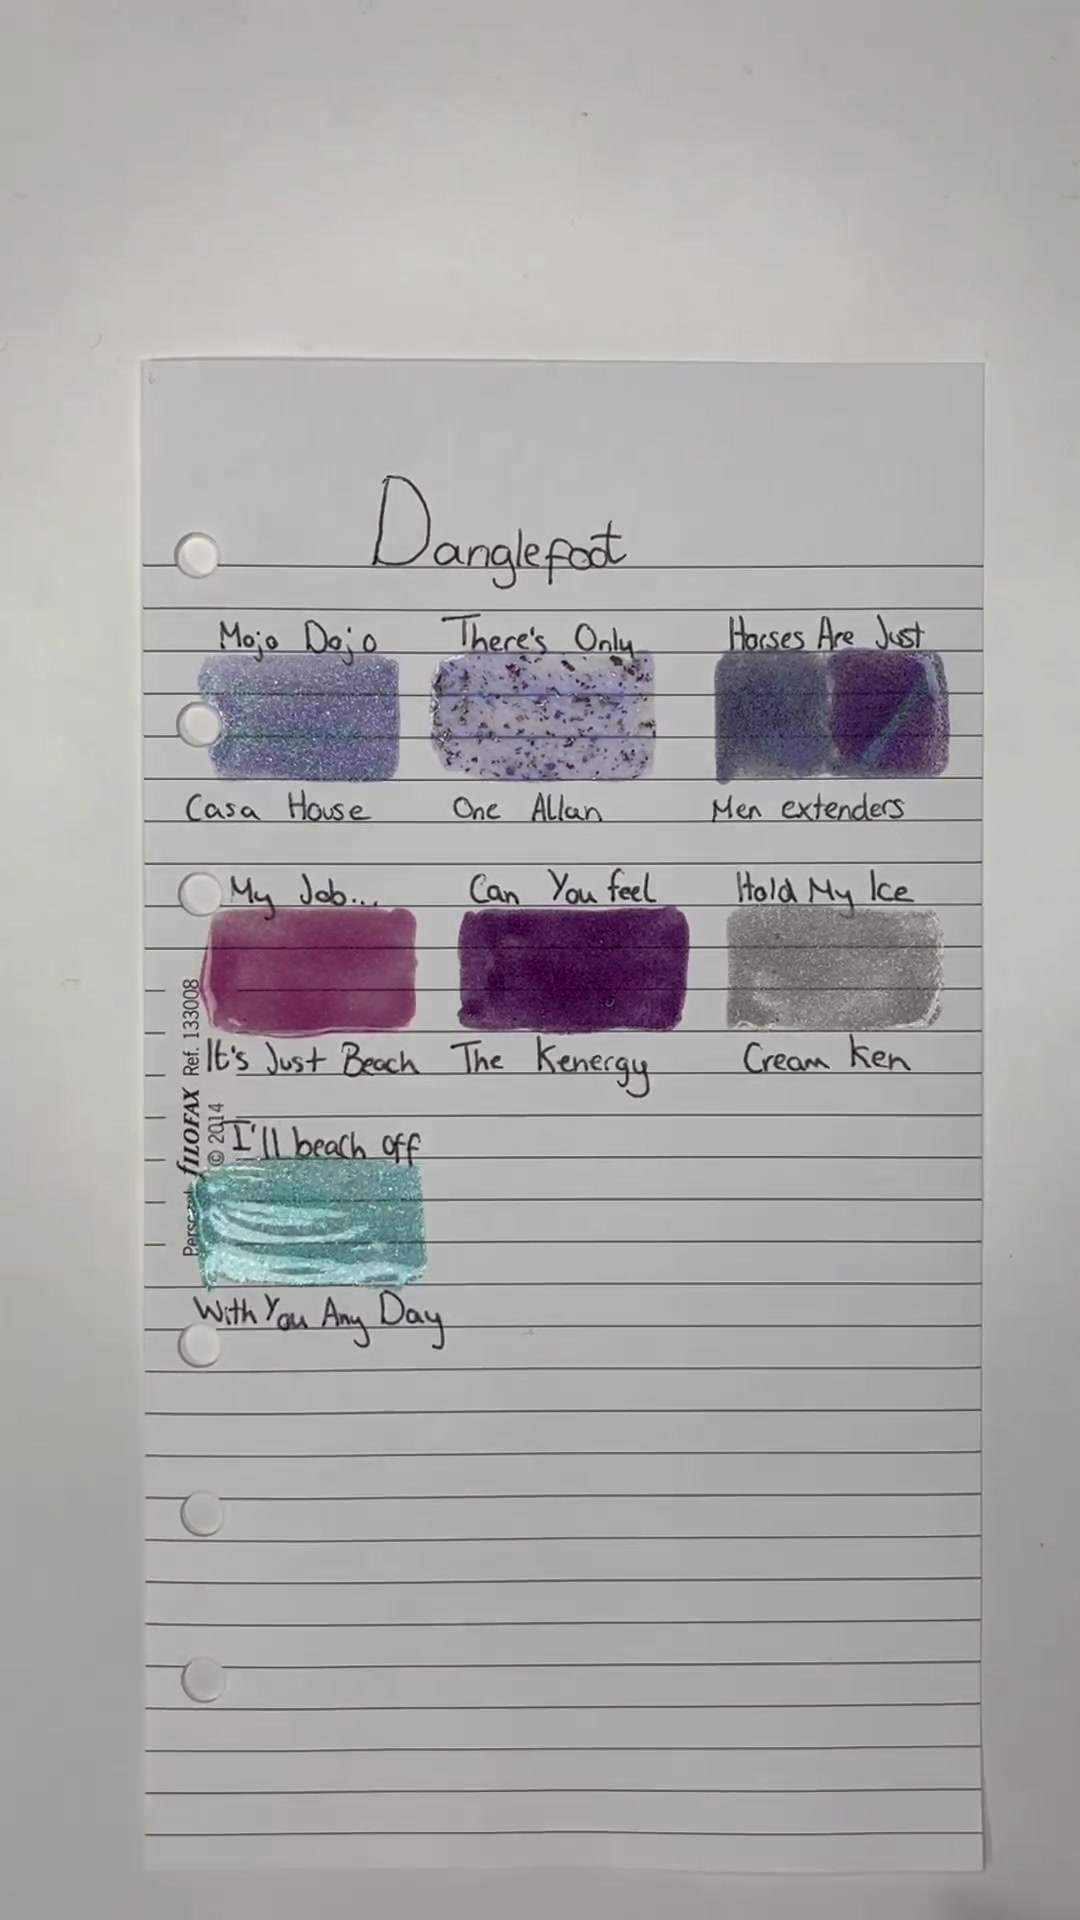 Danglefoot
Mojo Dojo
Casa House
There's Only
One Allan
Horses Are Just
Men extenders
My Job...
It's Just Beach
Can You feel
The Kenergy
Hold My Ice
Cream Ken
I'll beach off
With You Any Day
Personal fiLOFAX Ref. 133008
© 2014